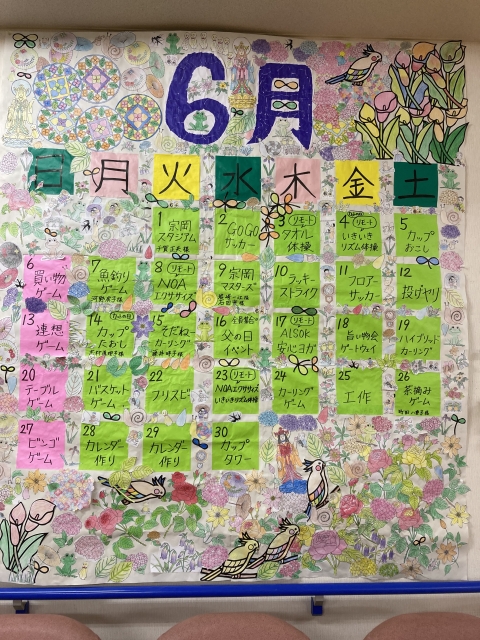 6月
日 月 火 水 木 金 土
1 宗岡
スタジアム
2 GOGO
サッカー
3 リモート
タオル
体操
4 リモート
いきいき
リズム体操
5 カップ
おこし
6
買い物
ゲーム
7
魚釣り
ゲーム
8 リモート
NOA
エクササイズ
9 宗岡
マスターズ
10 ラッキー
ストライク
11 フロアー
サッカー
12
投げヤリ
13
連想
ゲーム
14
カップ
たおし
15
そだねー
カーリング
16 全員集合
父の日
イベント
17 リモート
ALSOK
安心ヨガ
18
旨い物会
ゲートウェイ
19
ハイブリッド
カーリング
20
テーブル
ゲーム
21
バスケット
ゲーム
22
フリスビー
23 リモート
NOAエクササイズ
いきいきリズム体操
24
カーリング
ゲーム
25
工作
26
茶摘み
ゲーム
27
ビンゴ
ゲーム
28
カレンダー
作り
29
カレンダー
作り
30
カップ
タワー